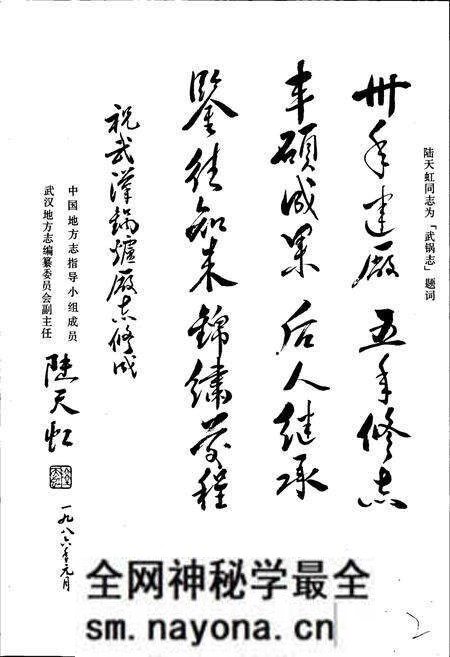 陆天虹同志为「武锅志」题词
卅年建厰 五年修志
丰硕成果 后人继承
鑒往知来 錦绣前程
祝武漢鍋爐厰志修成
中国地方志指导小组成员
武汉地方志编纂委员会副主任
陆天虹
一九八六年元月
全网神秘学最全
sm.nayona.cn